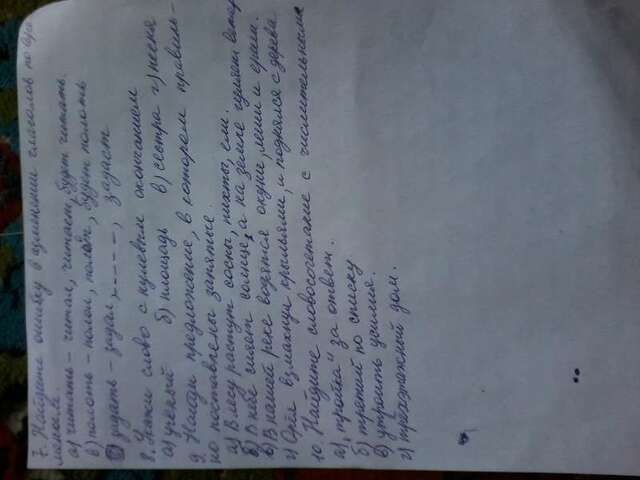 7. Найдите ошибку в изменении глаголов по вре
менам.
а) читать – читал, читает, будет читать.
в) полоть – полол, полет, будет полоть
б) задать – задал, -----, задаст
8. Укажи слово с нулевым окончанием
а) учёный б) площадь в) сестра г) песня
9. Найди предложение, в котором правиль-
но поставлены запятые.
а) В лесу растут сосны, пихты, ели.
б) В небе сияет солнце, а на земле гуляет ветер
в) В нашей реке водятся окуни, лещи и ерши.
г) Орёл взмахнул крыльями, и поднялся с дерева
10. Найдите словосочетание с числительным
а) „тройка" за ответ.
б) третий по списку
в) утроить усилия.
г) трёхэтажный дом.